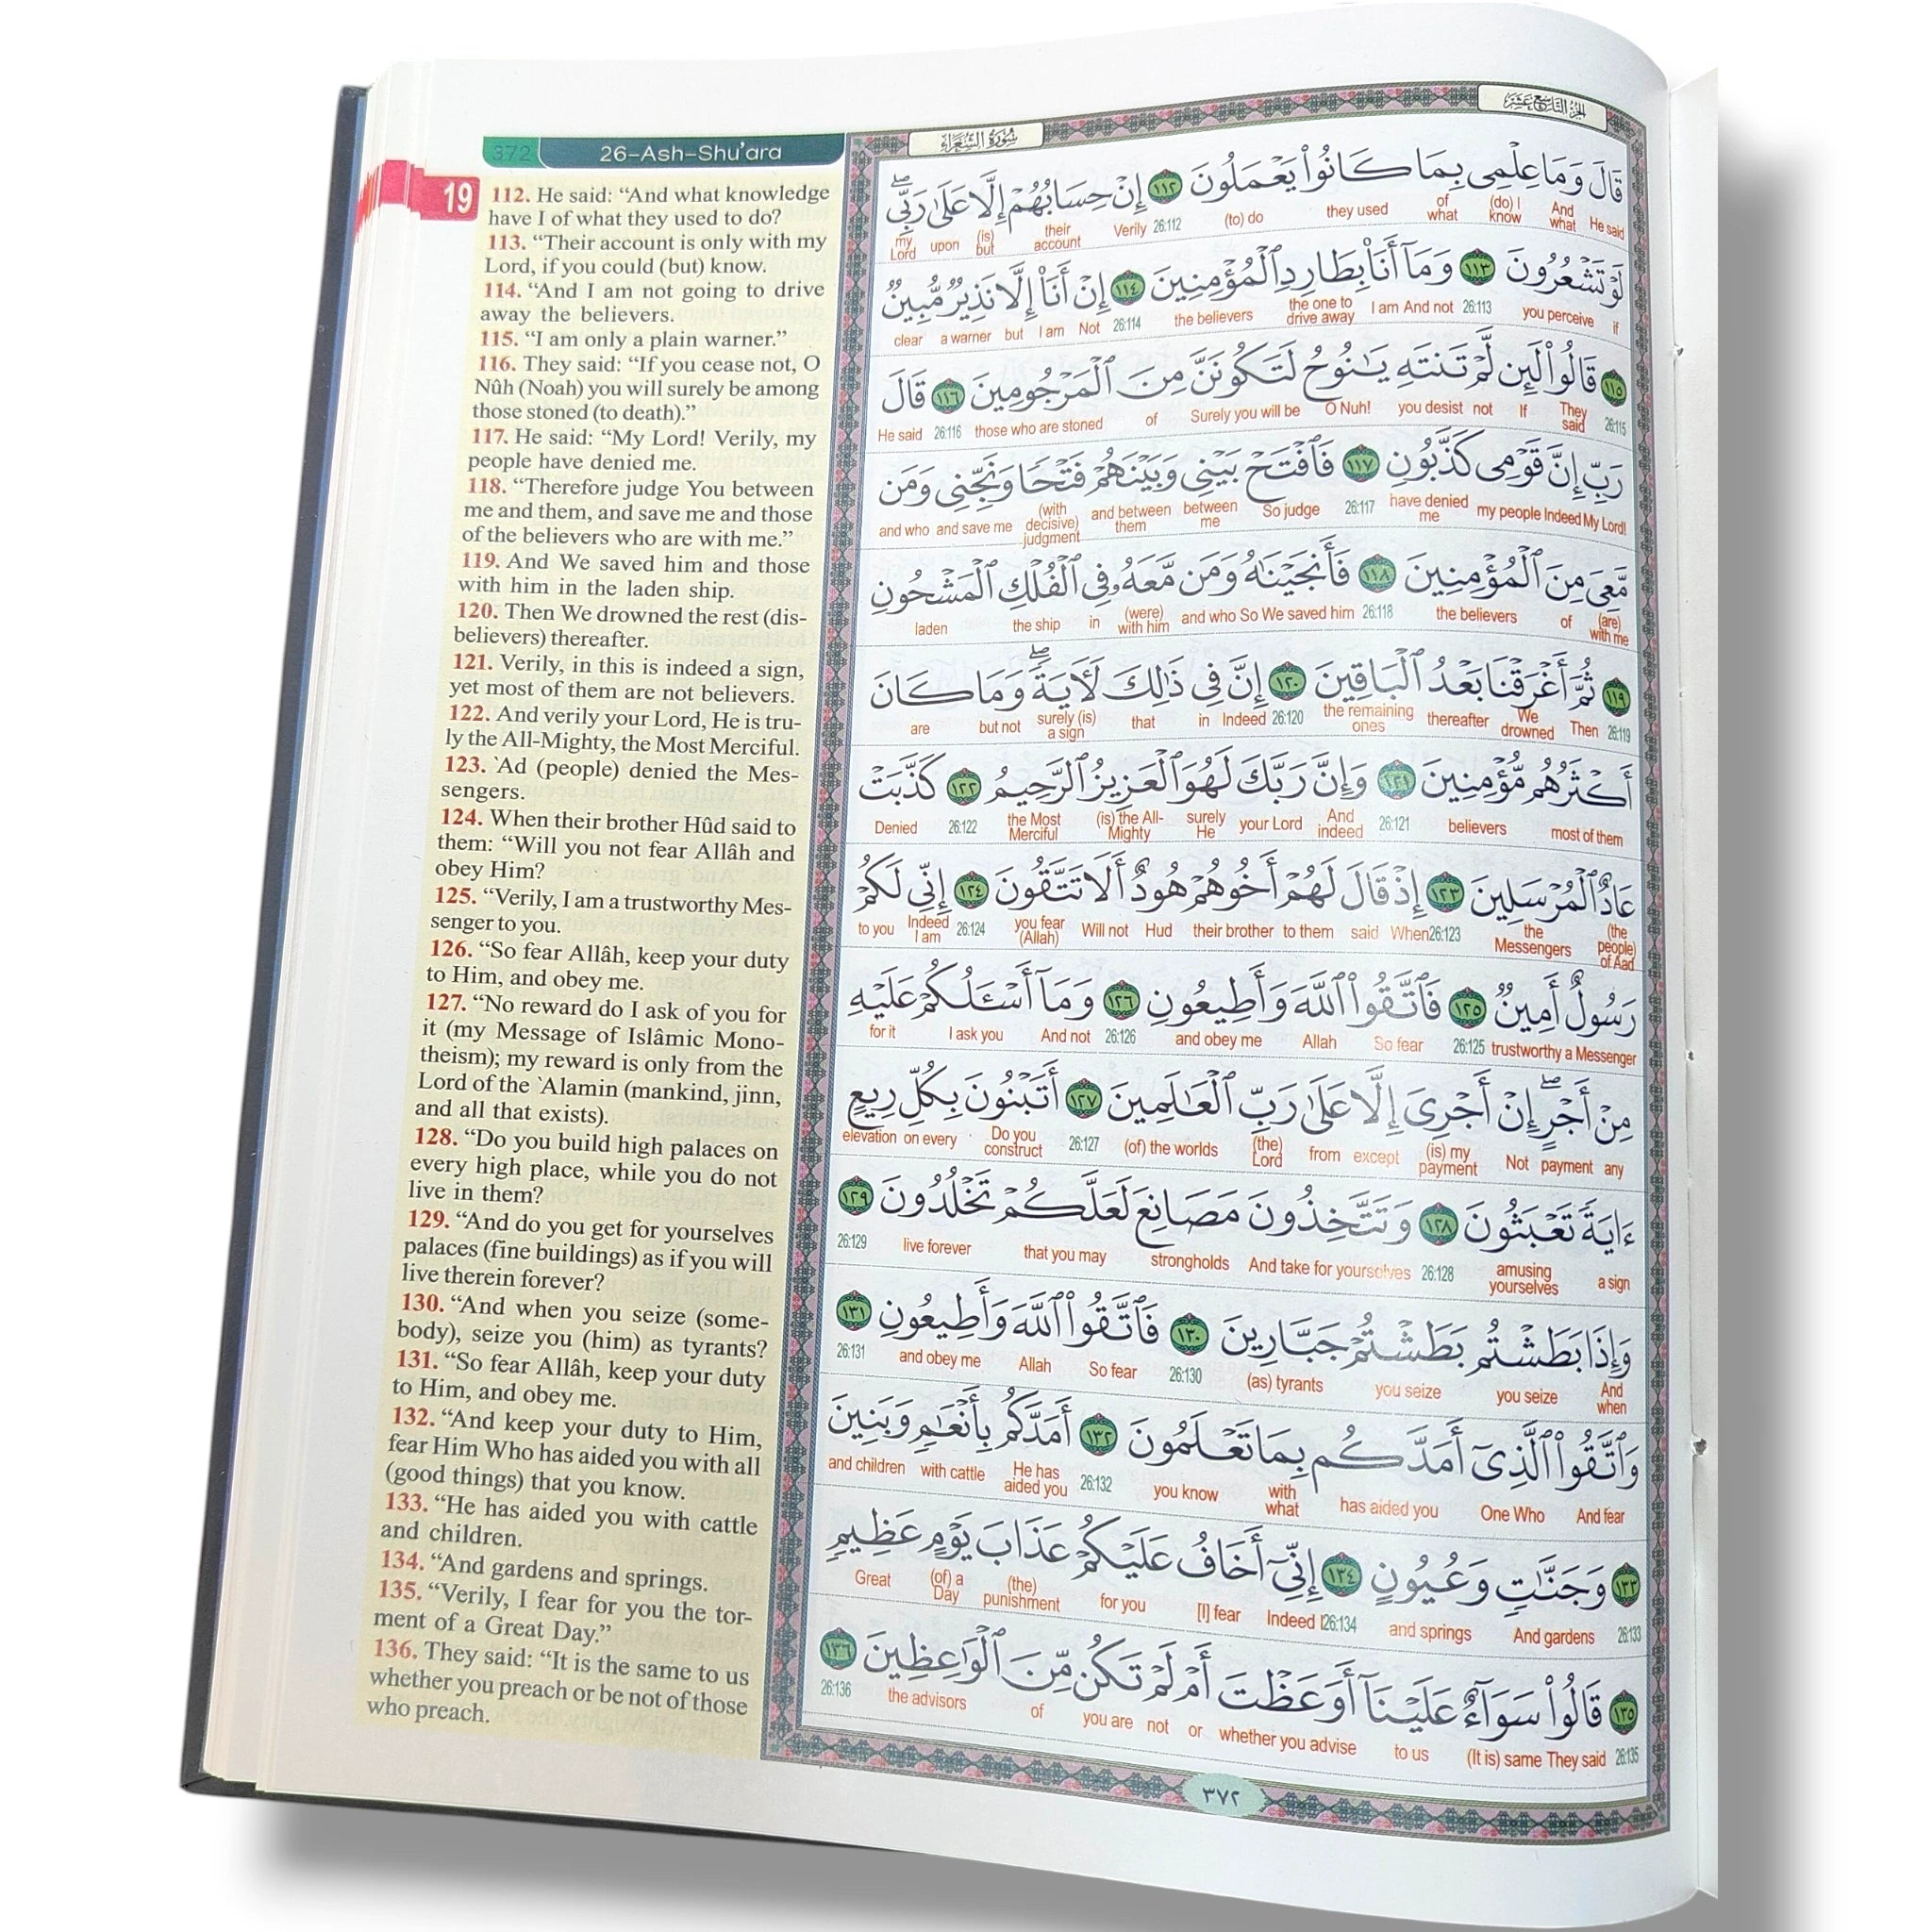 372 26-Ash-Shu'ara
19
112. He said: “And what knowledge
have I of what they used to do?
113. “Their account is only with my
Lord, if you could (but) know.
114. “And I am not going to drive
away the believers.
115. “I am only a plain warner.”
116. They said: “If you cease not, O
Nûh (Noah) you will surely be among
those stoned (to death).”
117. He said: “My Lord! Verily, my
people have denied me.
118. “Therefore judge You between
me and them, and save me and those
of the believers who are with me.”
119. And We saved him and those
with him in the laden ship.
120. Then We drowned the rest (dis-
believers) thereafter.
121. Verily, in this is indeed a sign,
yet most of them are not believers.
122. And verily your Lord, He is tru-
ly the All-Mighty, the Most Merciful.
123. `Ad (people) denied the Mes-
sengers.
124. When their brother Hûd said to
them: “Will you not fear Allâh and
obey Him?
125. “Verily, I am a trustworthy Mes-
senger to you.
126. “So fear Allâh, keep your duty
to Him, and obey me.
127. “No reward do I ask of you for
it (my Message of Islâmic Mono-
theism); my reward is only from the
Lord of the `Alamin (mankind, jinn,
and all that exists).
128. “Do you build high palaces on
every high place, while you do not
live in them?
129. “And do you get for yourselves
palaces (fine buildings) as if you will
live therein forever?
130. “And when you seize (some-
body), seize you (him) as tyrants?
131. “So fear Allâh, keep your duty
to Him, and obey me.
132. “And keep your duty to Him,
fear Him Who has aided you with all
(good things) that you know.
133. “He has aided you with cattle
and children.
134. “And gardens and springs.
135. “Verily, I fear for you the tor-
ment of a Great Day.”
136. They said: “It is the same to us
whether you preach or be not of those
who preach.
سُورَةُ الشُّعَرَاءِ
الجزء التاسع عشر
قَالَ وَمَا عِلْمِى بِمَا كَانُوا۟ يَعْمَلُونَ ١١٢ إِنْ حِسَابُهُمْ إِلَّا عَلَىٰ رَبِّى ۖ
He said And what (do) I know of what they used (to) do 26:112 Verily their account (is) but upon my Lord
لَوْ تَشْعُرُونَ ١١٣ وَمَآ أَنَا۠ بِطَارِدِ ٱلْمُؤْمِنِينَ ١١٤ إِنْ أَنَا۠ إِلَّا نَذِيرٌ مُّبِينٌ
if you perceive 26:113 And not I am the one to drive away the believers 26:114 Not I am but a warner clear
١١٥ قَالُوا۟ لَئِن لَّمْ تَنتَهِ يَـٰنُوحُ لَتَكُونَنَّ مِنَ ٱلْمَرْجُومِينَ ١١٦ قَالَ
26:115 They said If not you desist O Nuh! Surely you will be of those who are stoned 26:116 He said
رَبِّ إِنَّ قَوْمِى كَذَّبُونِ ١١٧ فَٱفْتَحْ بَيْنِى وَبَيْنَهُمْ فَتْحًا وَنَجِّنِى وَمَن
My Lord! Indeed my people have denied me 26:117 So judge between me and between them (with decisive) judgment and save me and who
مَّعِىَ مِنَ ٱلْمُؤْمِنِينَ ١١٨ فَأَنجَيْنَـٰهُ وَمَن مَّعَهُۥ فِى ٱلْفُلْكِ ٱلْمَشْحُونِ
(are) with me of the believers 26:118 So We saved him and who (were) with him in the ship laden
١١٩ ثُمَّ أَغْرَقْنَا بَعْدُ ٱلْبَاقِينَ ١٢٠ إِنَّ فِى ذَٰلِكَ لَـَٔايَةً ۖ وَمَا كَانَ
26:119 Then We drowned thereafter the remaining ones 26:120 Indeed in that surely (is) a sign but not are
أَكْثَرُهُم مُّؤْمِنِينَ ١٢١ وَإِنَّ رَبَّكَ لَهُوَ ٱلْعَزِيزُ ٱلرَّحِيمُ ١٢٢ كَذَّبَتْ
most of them believers 26:121 And indeed your Lord surely He (is) the All-Mighty the Most Merciful 26:122 Denied
عَادٌ ٱلْمُرْسَلِينَ ١٢٣ إِذْ قَالَ لَهُمْ أَخُوهُمْ هُودٌ أَلَا تَتَّقُونَ ١٢٤ إِنِّى لَكُمْ
(the people) of Aad the Messengers 26:123 When said to them their brother Hud Will not you fear (Allah) 26:124 Indeed I am to you
رَسُولٌ أَمِينٌ ١٢٥ فَٱتَّقُوا۟ ٱللَّهَ وَأَطِيعُونِ ١٢٦ وَمَآ أَسْـَٔلُكُمْ عَلَيْهِ
a Messenger trustworthy 26:125 So fear Allah and obey me 26:126 And not I ask you for it
مِنْ أَجْرٍ ۖ إِنْ أَجْرِىَ إِلَّا عَلَىٰ رَبِّ ٱلْعَـٰلَمِينَ ١٢٧ أَتَبْنُونَ بِكُلِّ رِيعٍ
any payment Not (is) my payment except from (the) Lord (of) the worlds 26:127 Do you construct on every elevation
ءَايَةً تَعْبَثُونَ ١٢٨ وَتَتَّخِذُونَ مَصَانِعَ لَعَلَّكُمْ تَخْلُدُونَ ١٢٩
a sign amusing yourselves 26:128 And take for yourselves strongholds that you may live forever 26:129
وَإِذَا بَطَشْتُم بَطَشْتُمْ جَبَّارِينَ ١٣٠ فَٱتَّقُوا۟ ٱللَّهَ وَأَطِيعُونِ ١٣١
And when you seize you seize (as) tyrants 26:130 So fear Allah and obey me 26:131
وَٱتَّقُوا۟ ٱلَّذِىٓ أَمَدَّكُم بِمَا تَعْلَمُونَ ١٣٢ أَمَدَّكُم بِأَنْعَـٰمٍ وَبَنِينَ
And fear One Who has aided you with what you know 26:132 He has aided you with cattle and children
١٣٣ وَجَنَّـٰتٍ وَعُيُونٍ ١٣٤ إِنِّىٓ أَخَافُ عَلَيْكُمْ عَذَابَ يَوْمٍ عَظِيمٍ
26:133 And gardens and springs 26:134 Indeed I [I] fear for you (the) punishment (of) a Day Great
١٣٥ قَالُوا۟ سَوَآءٌ عَلَيْنَآ أَوَعَظْتَ أَمْ لَمْ تَكُن مِّنَ ٱلْوَٰعِظِينَ ١٣٦
26:135 They said (It is) same to us whether you advise or not you are of the advisors 26:136
٣٧٢